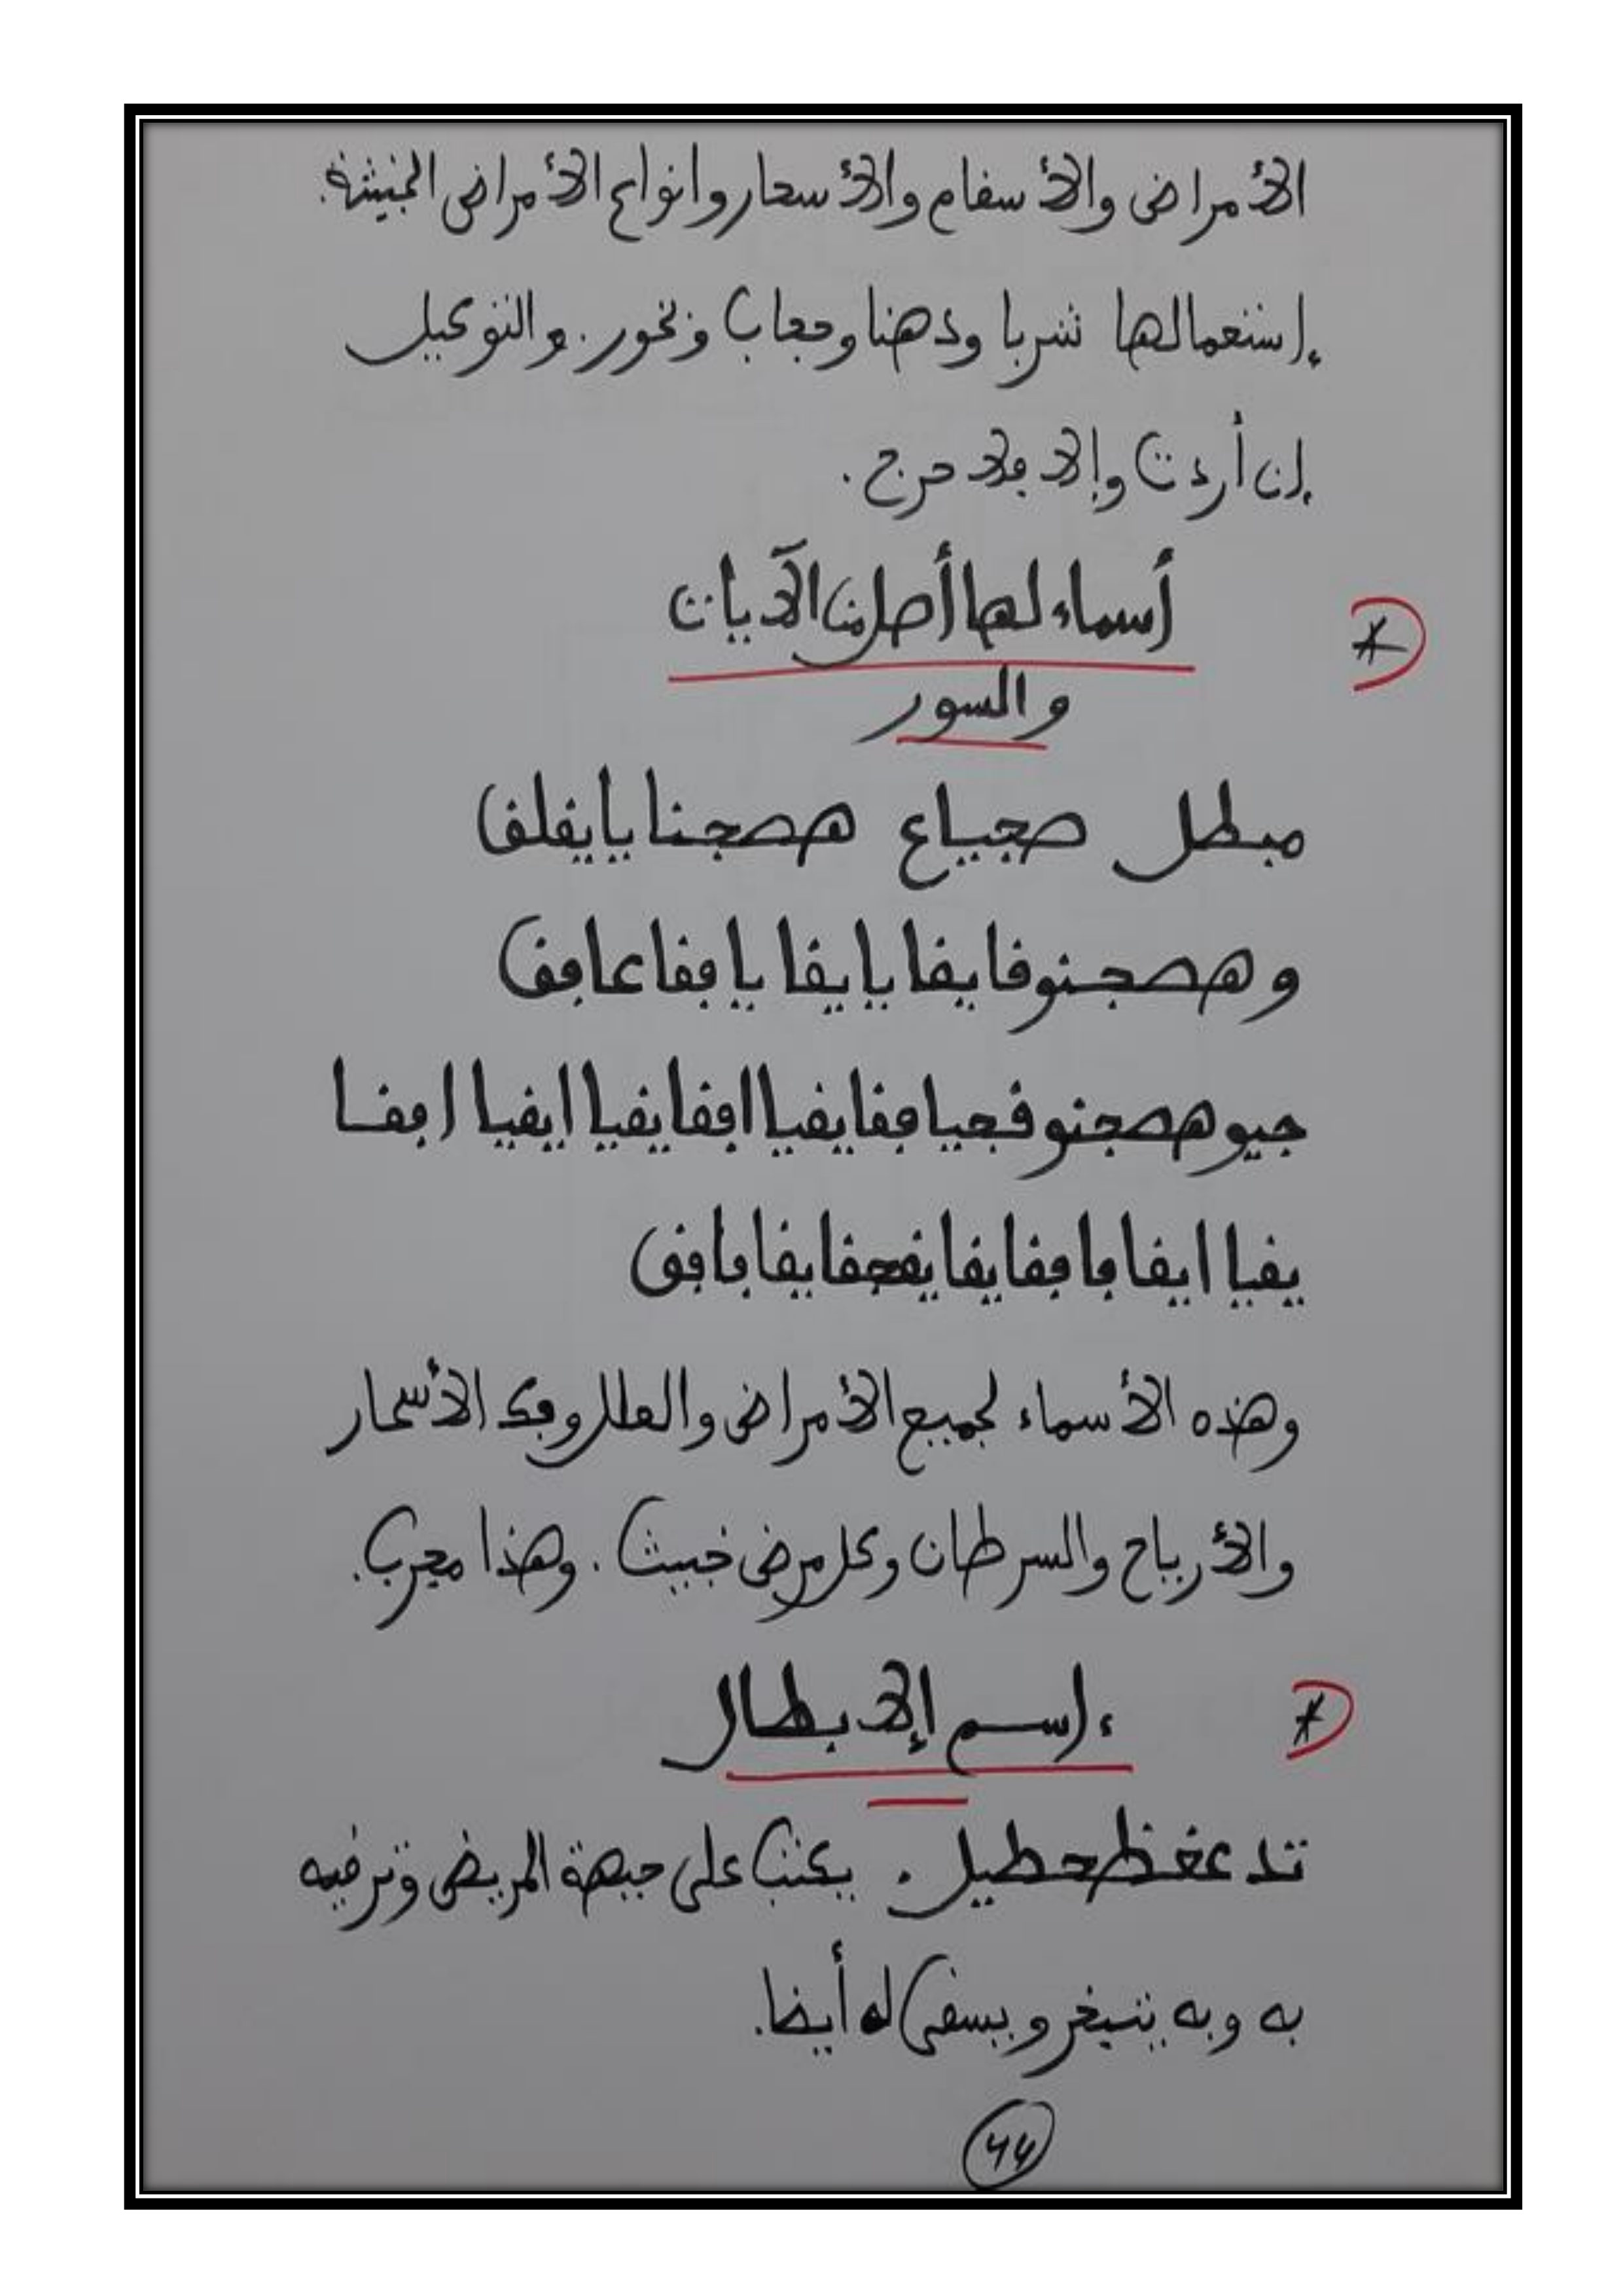 الأمراض والأسقام والأسحار وانواع الأمراض الخبيثة.
إستعمالها شربا ودهنا وحجاب وبخور. والتوكيل
إن أردت وإلا فلا حرج.
أسماء لها أصل من الآيات
والسور
مبطل صجياع هصجنا يا يفلق
وهصجنوفا يفا يا يفا يا ففا عافق
يفيا ايفا فا ففا يفا يفجفا يفا فافق
وهذه الأسماء لجميع الأمراض والعلل وفك الأسحار
والأرياح والسرطان وكل مرض خبيث. وهذا مجرب.
إسم الإبطال
تدعغظحطيل. يكتب على جبهة المريض وترقيه
به وبه يتبخر ويسقى له أيضا.
44